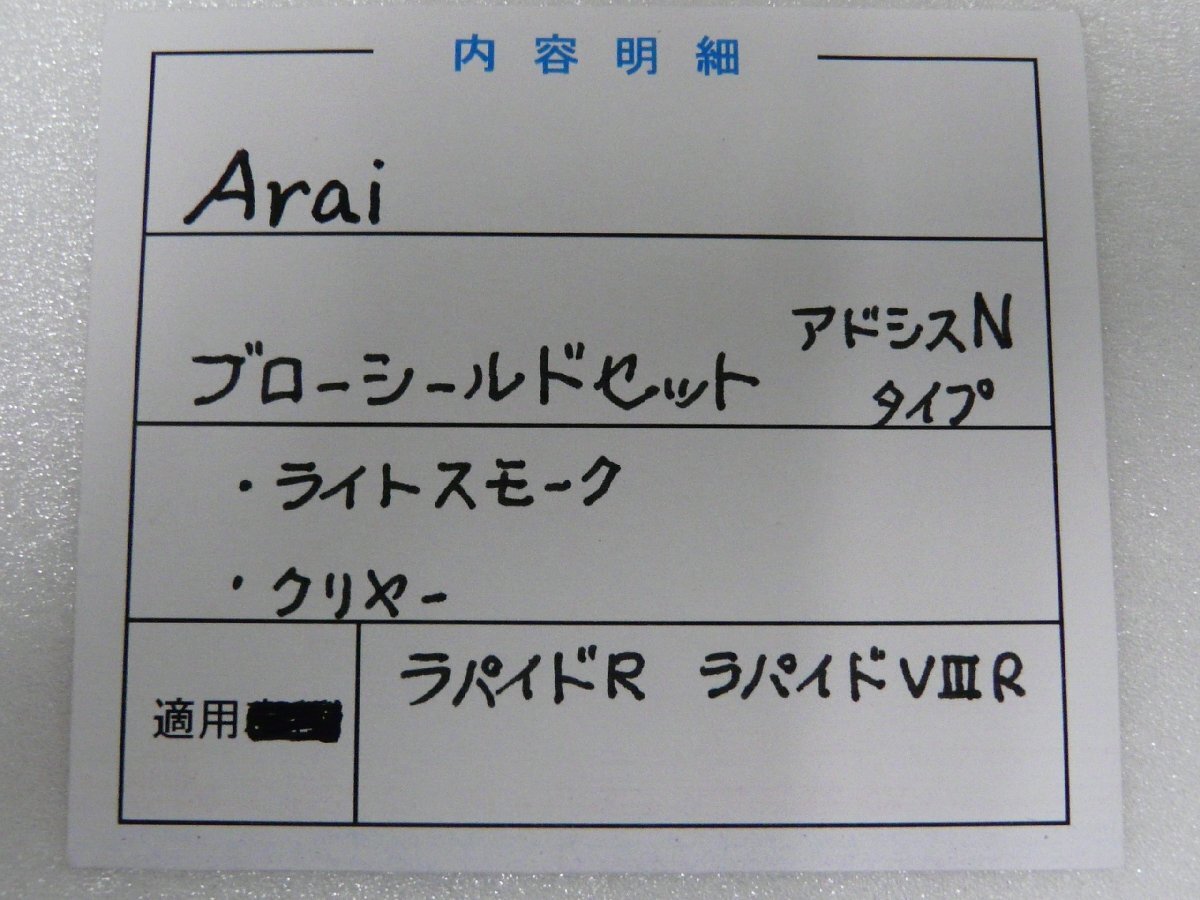 内容明細
Arai
ブローシールドセット アドシスN
タイプ
・ライトスモーク
・クリヤー
適用
ラパイドR ラパイドVⅢR